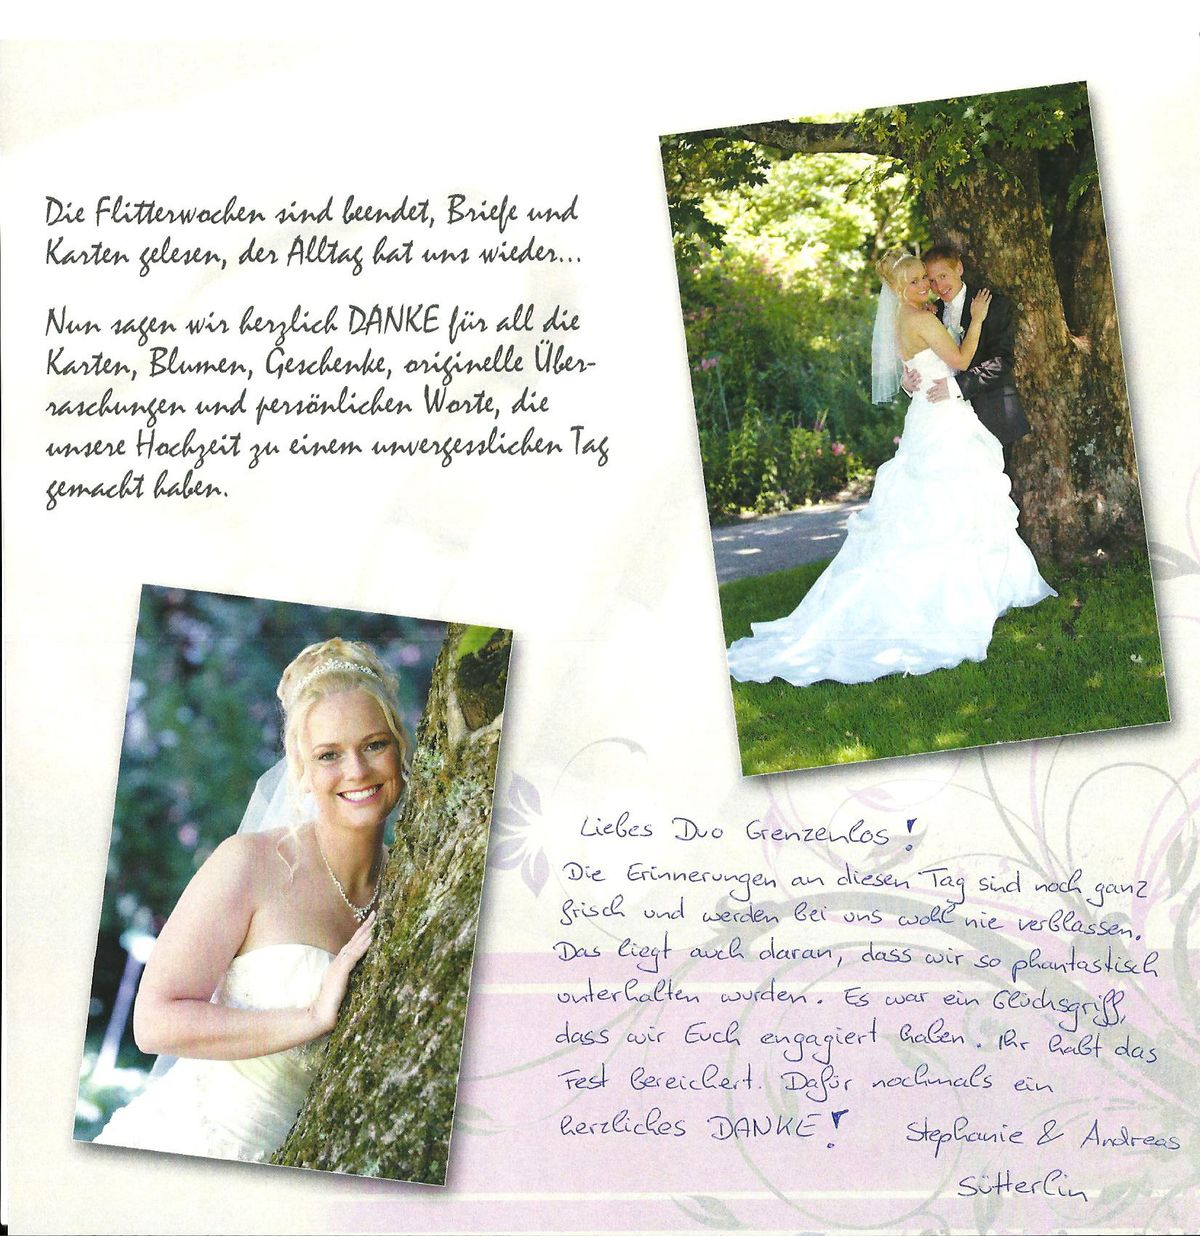 Die Flitterwochen sind beendet, Briefe und
Karten gelesen, der Alltag hat uns wieder...
Nun sagen wir herzlich DANKE für all die
Karten, Blumen, Geschenke, originelle Über-
raschungen und persönlichen Worte, die
unsere Hochzeit zu einem unvergesslichen Tag
gemacht haben.
Liebes Duo Grenzenlos!
Die Erinnerungen an diesen Tag sind noch ganz
frisch und werden bei uns wohl nie verblassen.
Das liegt auch daran, dass wir so phantastisch
unterhalten wurden. Es war ein Glücksgriff,
dass wir Euch engagiert haben. Ihr habt das
Fest bereichert. Dafür nochmals ein
herzliches DANKE! Stephanie & Andreas
Sütterlin